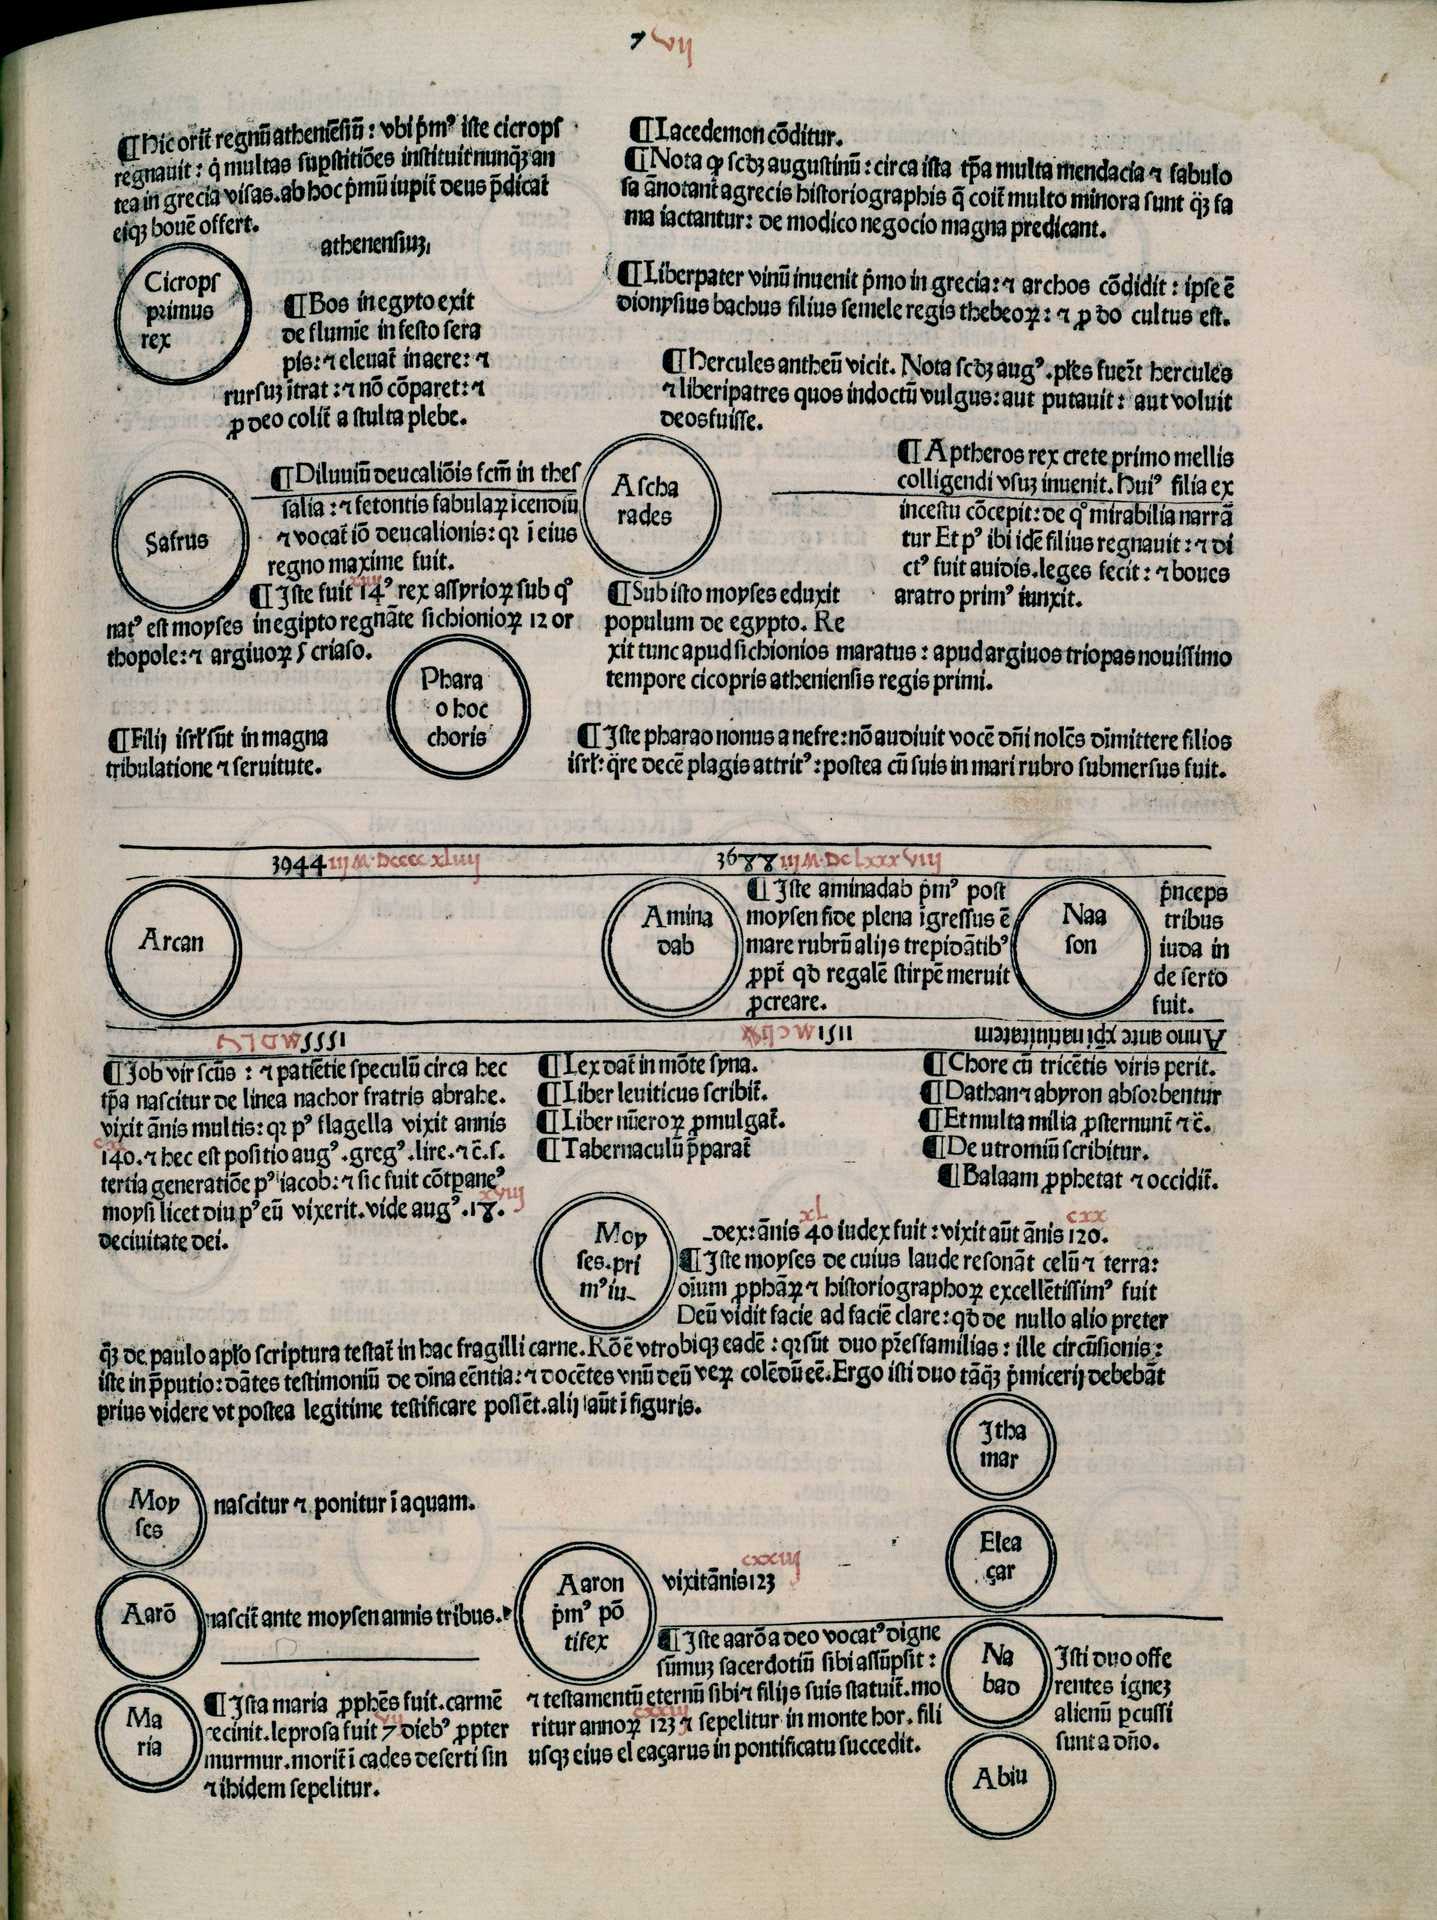 7 vij
¶Hic orit̃ regnũ atheniẽsiũ: vbi p̃mꝰ iste cicrops
regnauit: q̇ multas supstitiões instituit nunq̃ȝ an
tea in grecia visas. ab hoc p̃mũ iupit̃ deus p̃dicat̃
eiqȝ bouẽ offert.
athenensiuȝ,
Cicrops
primus
rex
¶Bos in egypto exit
de flumĩe in festo sera
pis: ⁊ eleuat̃ in aere: ⁊
rursuȝ ĩtrat: ⁊ nõ cõparet: ⁊
ꝓ deo colit̃ a stulta plebe.
¶Lacedemon cõditur.
¶Nota ꝙ scḋȝ augustinũ: circa ista tp̃a multa mendacia ⁊ fabulo
sa ãnotant̃ a grecis historiographis q̃ coit̃ multo minora sunt q̃ȝ fa
ma iactantur: de modico negocio magna predicant.
¶Liberpater vinũ inuenit p̃mo in grecia: ⁊ archos cõdidit: ipse ẽ
dionysius bachus filius semele regis thebeoꝝ: ⁊ ꝓ do cultus est.
¶Hercules antheũ vicit. Nota scḋȝ augꝰ. pl̃es fuer̃t hercules
⁊ liberipatres quos indoctũ vulgus: aut putauit: aut voluit
deos fuisse.
Safrus
¶Diluuiũ deucaliõis fcm̃ in thes
salia: ⁊ fetontis fabulaꝝ ĩcendiũ
⁊ vocat̃ iõ deucalionis: qꝛ ĩ eius
regno maxime fuit.
Ascha
rades
¶Aptheros rex crete primo mellis
colligendi vsuȝ inuenit. huiꝰ filia ex
incestu cõcepit: de qͦ mirabilia narrã
tur Et pꝰ ibi idẽ filius regnauit: ⁊ di
ctꝰ fuit auidis. leges fecit: ⁊ boues
aratro primꝰ iunxit.
xiiij
¶Iste fuit 14ꝰ rex assyrioꝝ sub qͦ
natꝰ est moyses in egipto regnãte sichionioꝝ 12 or
thopole: ⁊ argiuoꝝ 5 criaso.
¶Sub isto moyses eduxit
populum de egypto. Re
xit tunc apud sichionios maratus: apud argiuos triopas nouissimo
tempore cicopris atheniensis regis primi.
Phara
o hoc
choris
¶Filij isrl̃ sũt in magna
tribulatione ⁊ seruitute.
¶Iste pharao nonus a nefre: nõ audiuit vocẽ dñi nolẽs dimittere filios
isrl̃: q̃re decẽ plagis attritꝰ: postea cũ suis in mari rubro submersus fuit.
3944 iijM·Dcccc xliiij
3688 iijM·Dclxxxviij
Arcan
Amina
dab
¶Iste aminadab p̃mꝰ post
moysen fide plena ĩgressus ẽ
mare rubrũ alijs trepidãtibꝰ
ꝓpt̃ qḋ regalẽ stirpẽ meruit
ꝓcreare.
Naa
son
p̃nceps
tribus
iuda in
deserto
fuit.
1555
1511
Anno ante xp̃i natiuitatem
¶Iob vir scũs: ⁊ patiẽtie speculũ circa hec
tp̃a nascitur de linea nachor fratris abrahe.
vixit ãnis multis: qꝛ pꝰ flagella vixit annis
cxl
140. ⁊ hec est positio augꝰ. gregꝰ. lire. ⁊ c̃. s.
tertia generatiõe pꝰ iacob: ⁊ sic fuit cõtꝑaneꝰ
xviij
moysi licet diu pꝰ eũ vixerit. vide augꝰ. 18.
de ciuitate dei.
¶Lex dat̃ in mõte syna.
¶Liber leuiticus scribit̃.
¶Liber nũeroꝝ ꝓmulgat̃.
¶Tabernaculũ p̃parat̃
¶Chore cũ tricẽtis viris perit.
¶Dathan ⁊ abyron absorbentur
¶Et multa milia ꝓsternunt̃ ⁊ c̃.
¶Deutromiũ scribitur.
¶Balaam ꝓphetat ⁊ occidit̃.
Moy
ses. pri
mꝰ iu-
xl cxx
-dex: ãnis 40 iudex fuit: vixit aũt ãnis 120.
¶Iste moyses de cuius laude resonãt celũ ⁊ terra:
oĩum ꝓphãꝝ ⁊ historiographoꝝ excellẽtissimꝰ fuit
Deũ vidit facie ad faciẽ clare: qḋ de nullo alio preter
q̃ȝ de paulo apl̃o scriptura testat̃ in hac fragilli carne. Rõ ẽ vtrobiqȝ eadẽ: qꝛ sũt duo pr̃es familias: ille circũsionis:
iste in p̃putio: dãtes testimoniũ de diña eẽntia: ⁊ docẽtes vnũ deũ veꝝ colẽdũ eẽ. Ergo isti duo tãq̃ȝ p̃micerij debebãt
prius videre vt postea legitime testificare possẽt. alij aũt ĩ figuris.
Itha
mar
Elea
çar
Moy
ses
nascitur ⁊ ponitur ĩ aquam.
Aarõ
nascit̃ ante moysen annis tribus.
Aaron
p̃mꝰ põ
tifex
cxxiij
vixit ãnis 123
¶Iste aarõ a deo vocatꝰ digne
sũmuȝ sacerdotiũ sibi assũpsit:
⁊ testamentũ eternũ sibi ⁊ filijs suis statuit̃. mo
cxxiij
ritur annoꝝ 123 ⁊ sepelitur in monte hor. fili
usqȝ eius eleaçarus in pontificatu succedit.
Ma
ria
¶Ista maria ꝓphẽs fuit. carmẽ
vij
cecinit. leprosa fuit 7 diebꝰ ꝓpter
murmur. morit̃ ĩ cades deserti sin
⁊ ibidem sepelitur.
Na
bad
Abiu
Isti duo offe
rentes ignez
alienũ ꝑcussi
sunt a dño.